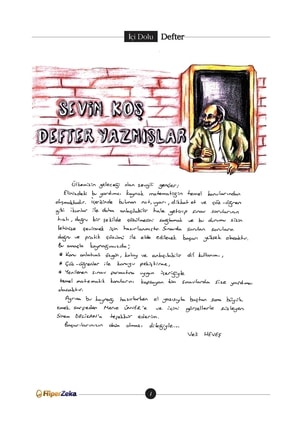 İçi Dolu Defter
SEVİN KOŞ
DEFTER YAZMIŞLAR
Ülkemizin geleceği olan sevgili gençler;
Elinizdeki bu yardımcı kaynak matematiğin temel konularından
oluşmaktadır. İçerisinde bulunan not, uyarı, dikkat et ve çöz-öğren
gibi ikonlar ile daha anlaşılabilir hale getirip sınav sorularının
hızlı, doğru bir şekilde çözülmesini sağlamak ve bu durumu sizin
lehinize çevirmek için hazırlanmıştır. Sınavda sorulan soruların
doğru ve pratik çözümü ile elde edilecek başarı yüksek olacaktır.
Bu amaçla kaynağımızda;
Konu anlatımı özgün, kolay ve anlaşılabilir dil kullanımı,
Çöz-öğrenler ile konuyu pekiştirme,
Yenilenen sınav formatına uygun içeriğiyle
temel matematik konularını kapsayan tüm sınavlarda size yardımcı
olacaktır.
Ayrıca bu kaynağı hazırlarken el yazısıyla baştan sona büyük
emek sarfeden Merve ve içini görsellerle süsleyen
Sinem teşekkür ederim.
Başarılarınızın daim olması dileğiyle...
Veli HEVES
HiperZeka
1